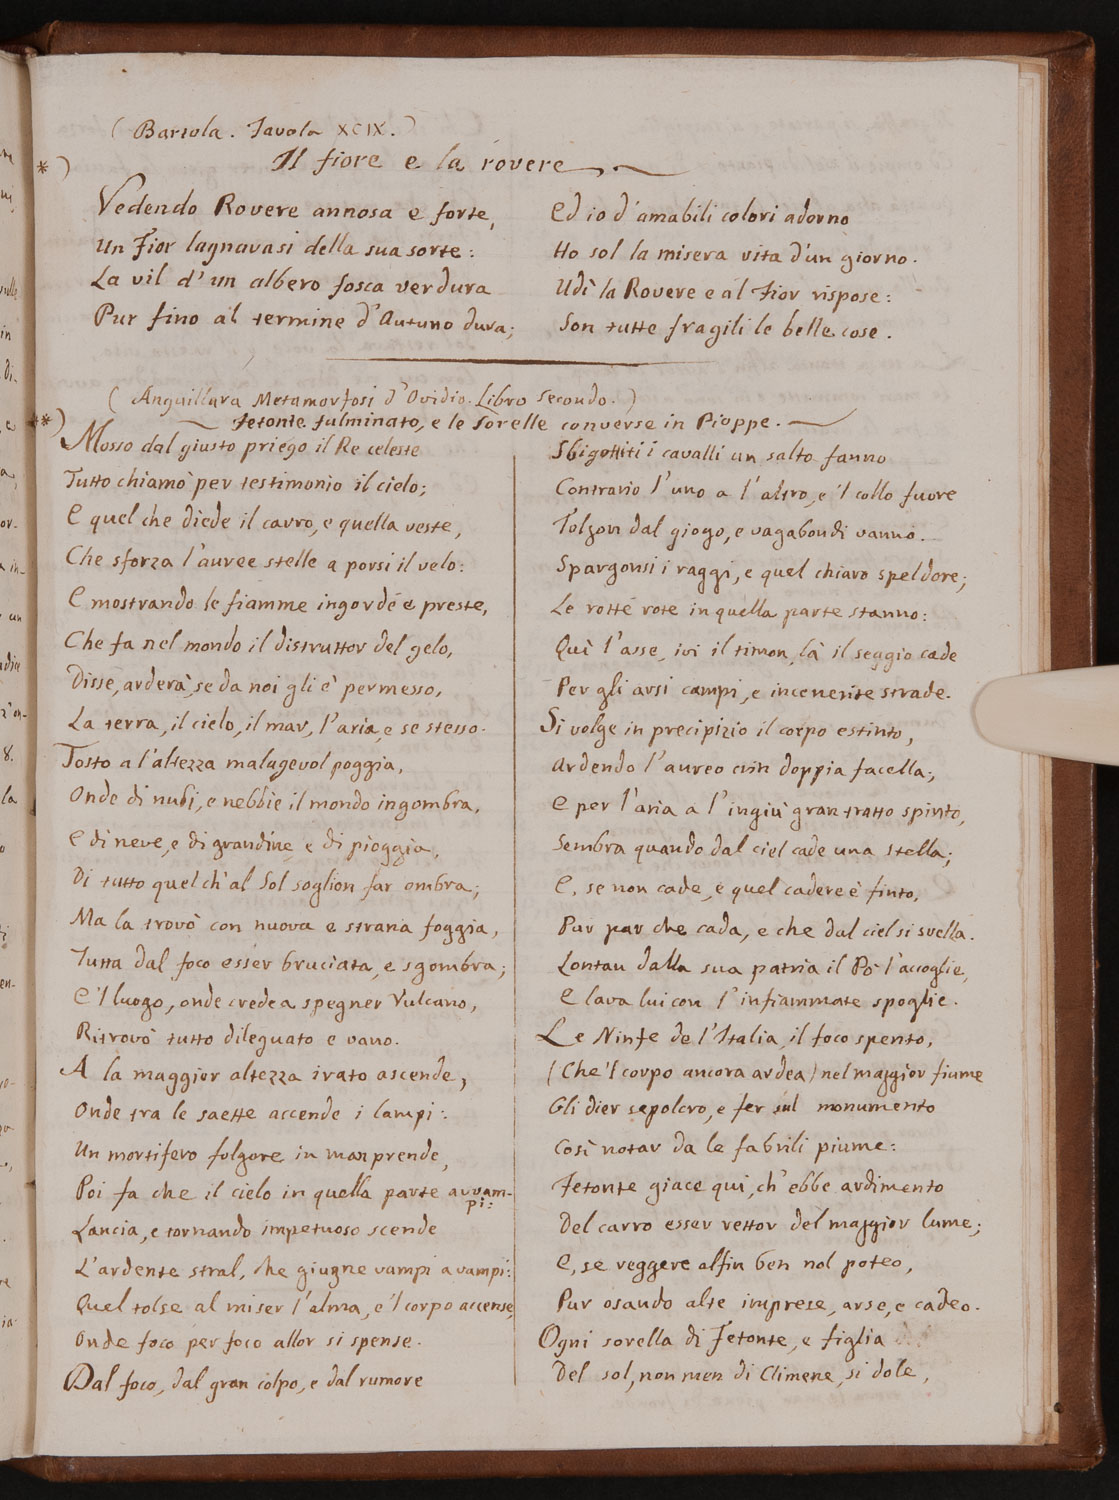 ( Bartola. Tavola XCIX. )
*) Il fiore e la rovere
Vedendo Rovere annosa e forte,
Un Fior lagnavasi della sua sorte:
La vil d'un albero fosca verdura
Pur fino al termine d'Autuno dura;
Ed io d'amabili colori adorno
Ho sol la misera vita d'un giorno.
Udì la Rovere e al Fior rispose:
Son tutte fragili le belle cose.
( Anguillara Metamorfosi d'Ovidio. Libro Secondo. )
**) Fetonte fulminato, e le Sorelle converse in Pioppe.
Mosso dal giusto priego il Re celeste
Tutto chiamò per testimonio il cielo;
E quel che diede il carro, e quella veste,
Che sforza l'auree stelle a porsi il velo:
E mostrando le fiamme ingorde e preste,
Che fa nel mondo il distruttor del gelo,
Disse, arderà, se da noi gli è permesso,
La terra, il cielo, il mar, l'aria, e se stesso.
Tosto a l'altezza malagevol poggia,
Onde di nubi, e nebbie il mondo ingombra,
E di neve, e di grandine e di pioggia,
Di tutto quel ch'al Sol soglion far ombra;
Ma la trovò con nuova e strana foggia,
Tutta dal foco esser bruciata, e sgombra;
E'l luogo, onde credea spegner Vulcano,
Ritrovò tutto dileguato e vano.
A la maggior altezza irato ascende,
Onde tra le saette accende i lampi:
Un mortifero folgore in man prende,
Poi fa che il cielo in quella parte avvam-
pi:
Lancia, e tornando impetuoso scende
L'ardente stral, che giugne vampi a vampi:
Quel tolse al miser l'alma, e'l corpo accense,
Onde foco per foco allor si spense.
Dal foco, dal gran colpo, e dal rumore
Sbigottiti i cavalli un salto fanno
Contrario l'uno a l'altro, e'l collo fuore
Tolgon dal giogo, e vagabondi vanno.
Spargonsi i raggi, e quel chiaro speldore;
Le rotte rote in quella parte stanno:
Quì l'asse, ivi il timon, là il seggio cade
Per gli arsi campi, e incenerite strade.
Si volge in precipizio il corpo estinto,
Ardendo l'aureo crin doppia facella;
E per l'aria a l'ingiù gran tratto spinto,
Sembra quando dal ciel cade una stella;
E, se non cade, e quel cadere è finto,
Pur par che cada, e che dal ciel si svella.
Lontan dalla sua patria il Pò l'accoglie,
E lava lui con l'infiammate spoglie.
Le Ninfe de l'Italia il foco spento,
(Che'l corpo ancora ardea) nel maggior fiume
Gli dier sepolcro, e fer sul monumento
Così notar da le fabrili piume:
Fetonte giace qui, ch'ebbe ardimento
Del carro esser rettor del maggior lume;
E, se reggere alfin ben nol poteo,
Pur osando alte imprese, arse, e cadeo.
Ogni sorella di Fetonte, e figlia
Del sol, non men di Climene, si dole,